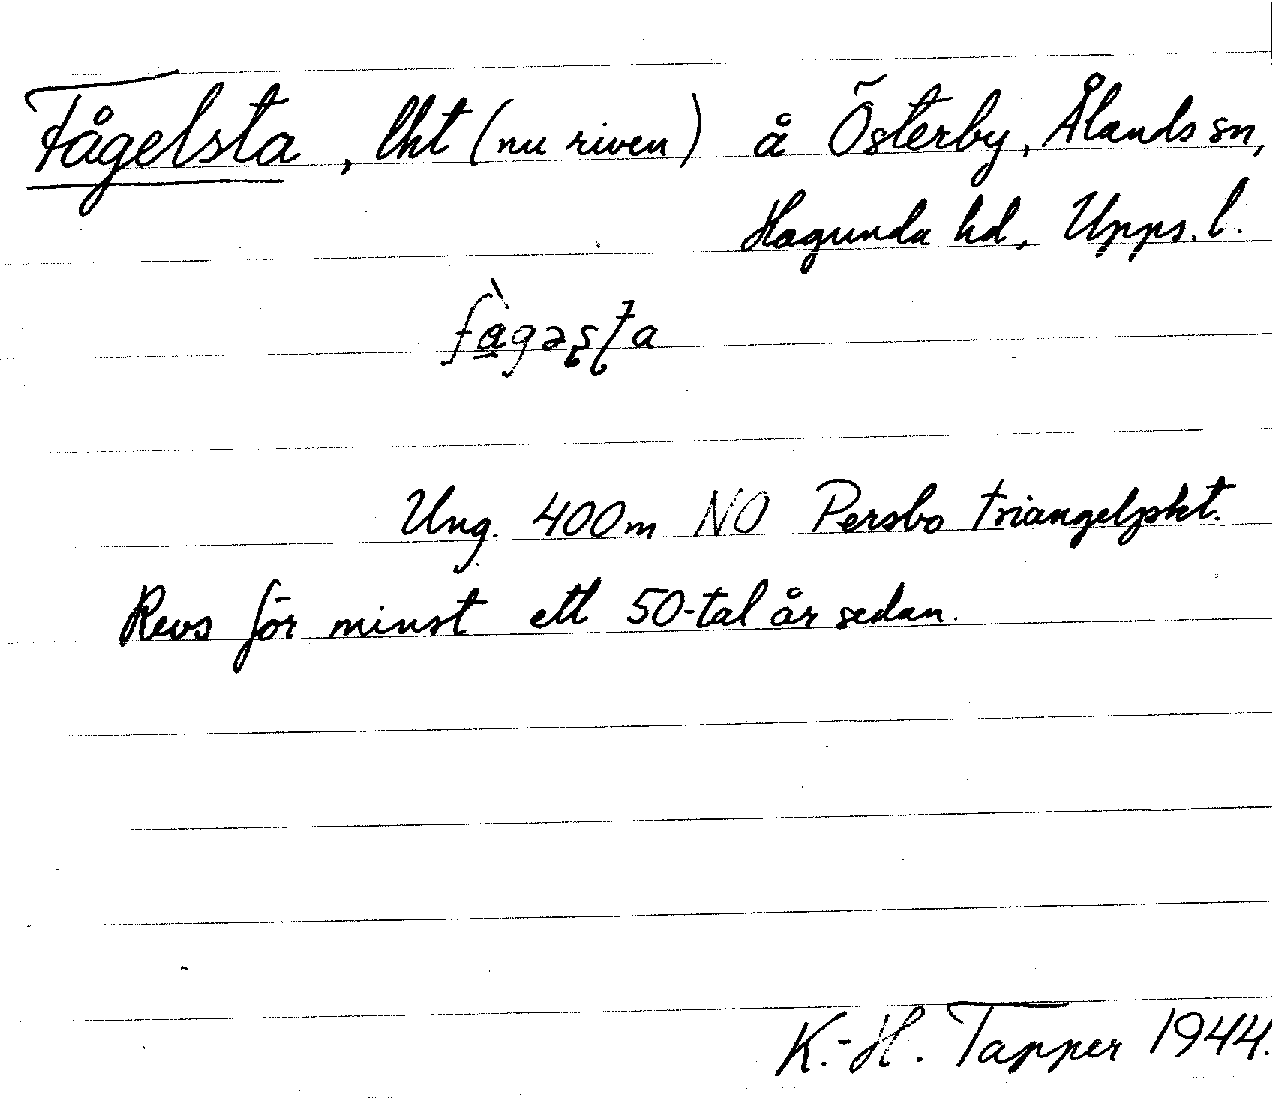 Fågelsta, lht (nu riven) å Österby, Ålands sn,
Hagunda hd, Upps. l.
fàgəʂʈa
Ung. 400m NO Persbo triangelpkt.
Revs för minst ett 50-tal år sedan.
K.-H. Tapper 1944.